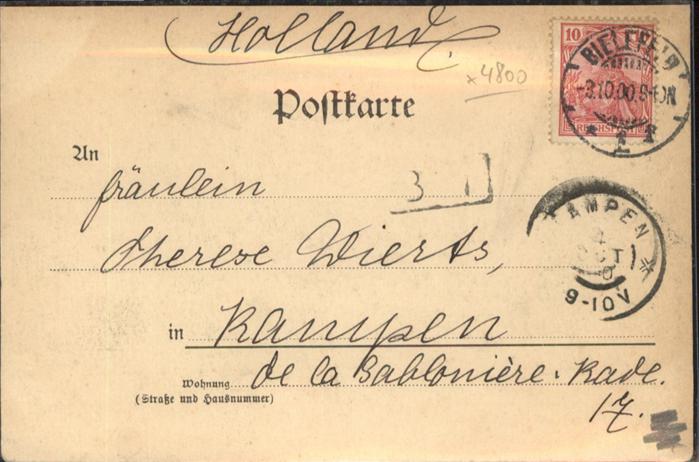 Holland
10
BIELEFELD
x 4800
-3.10.00.9-10N
Postkarte
REICHSPOST
An
fräulein
3
Therese Wierts,
KAMPEN
OCT
9-10V
in Kampen
Wohnung de la Sablonière. Kade.
(Straße und Hausnummer)
17.